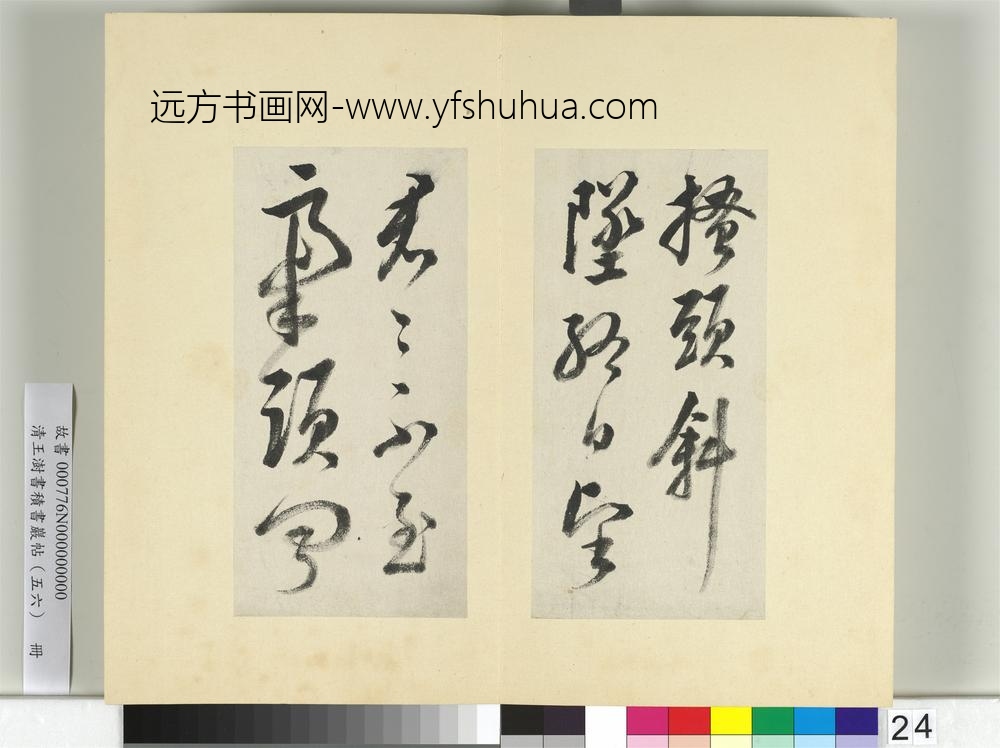 远方书画网-www.yfshuhua.com
搔頭斜
墜終日望
君〻不至
舉頭聞
故書 000776N000000000
清王澍書積書巖帖（五六） 冊
24